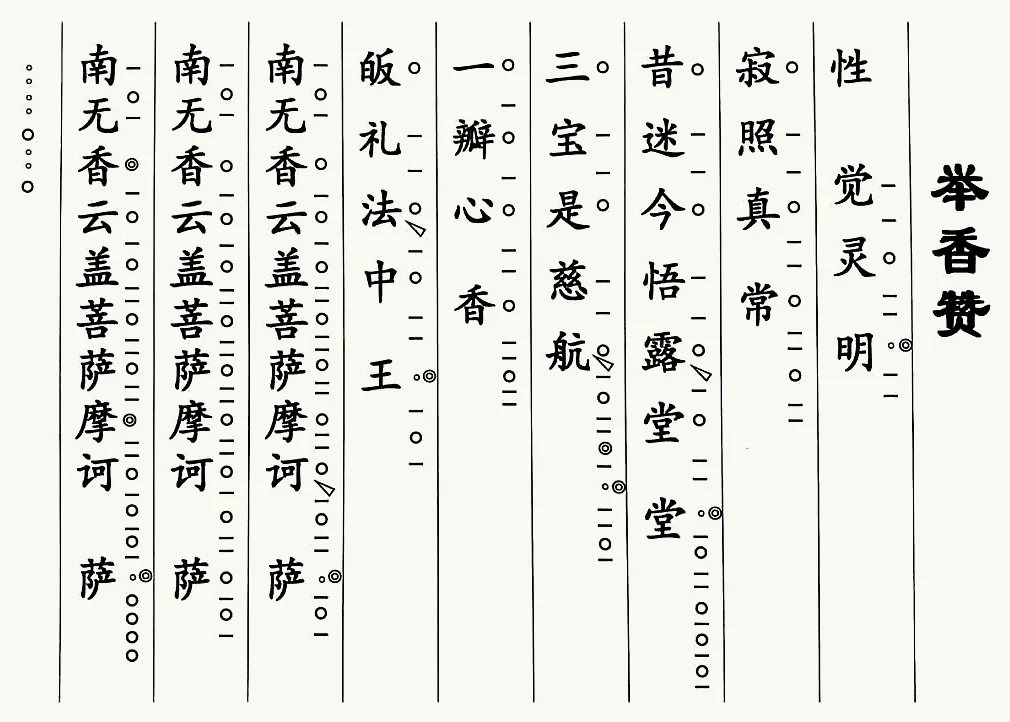 举香赞
性觉灵明
寂照真常
昔迷今悟露堂堂
三宝是慈航
一瓣心香
皈礼法中王
南无香云盖菩萨摩诃萨
南无香云盖菩萨摩诃萨
南无香云盖菩萨摩诃萨